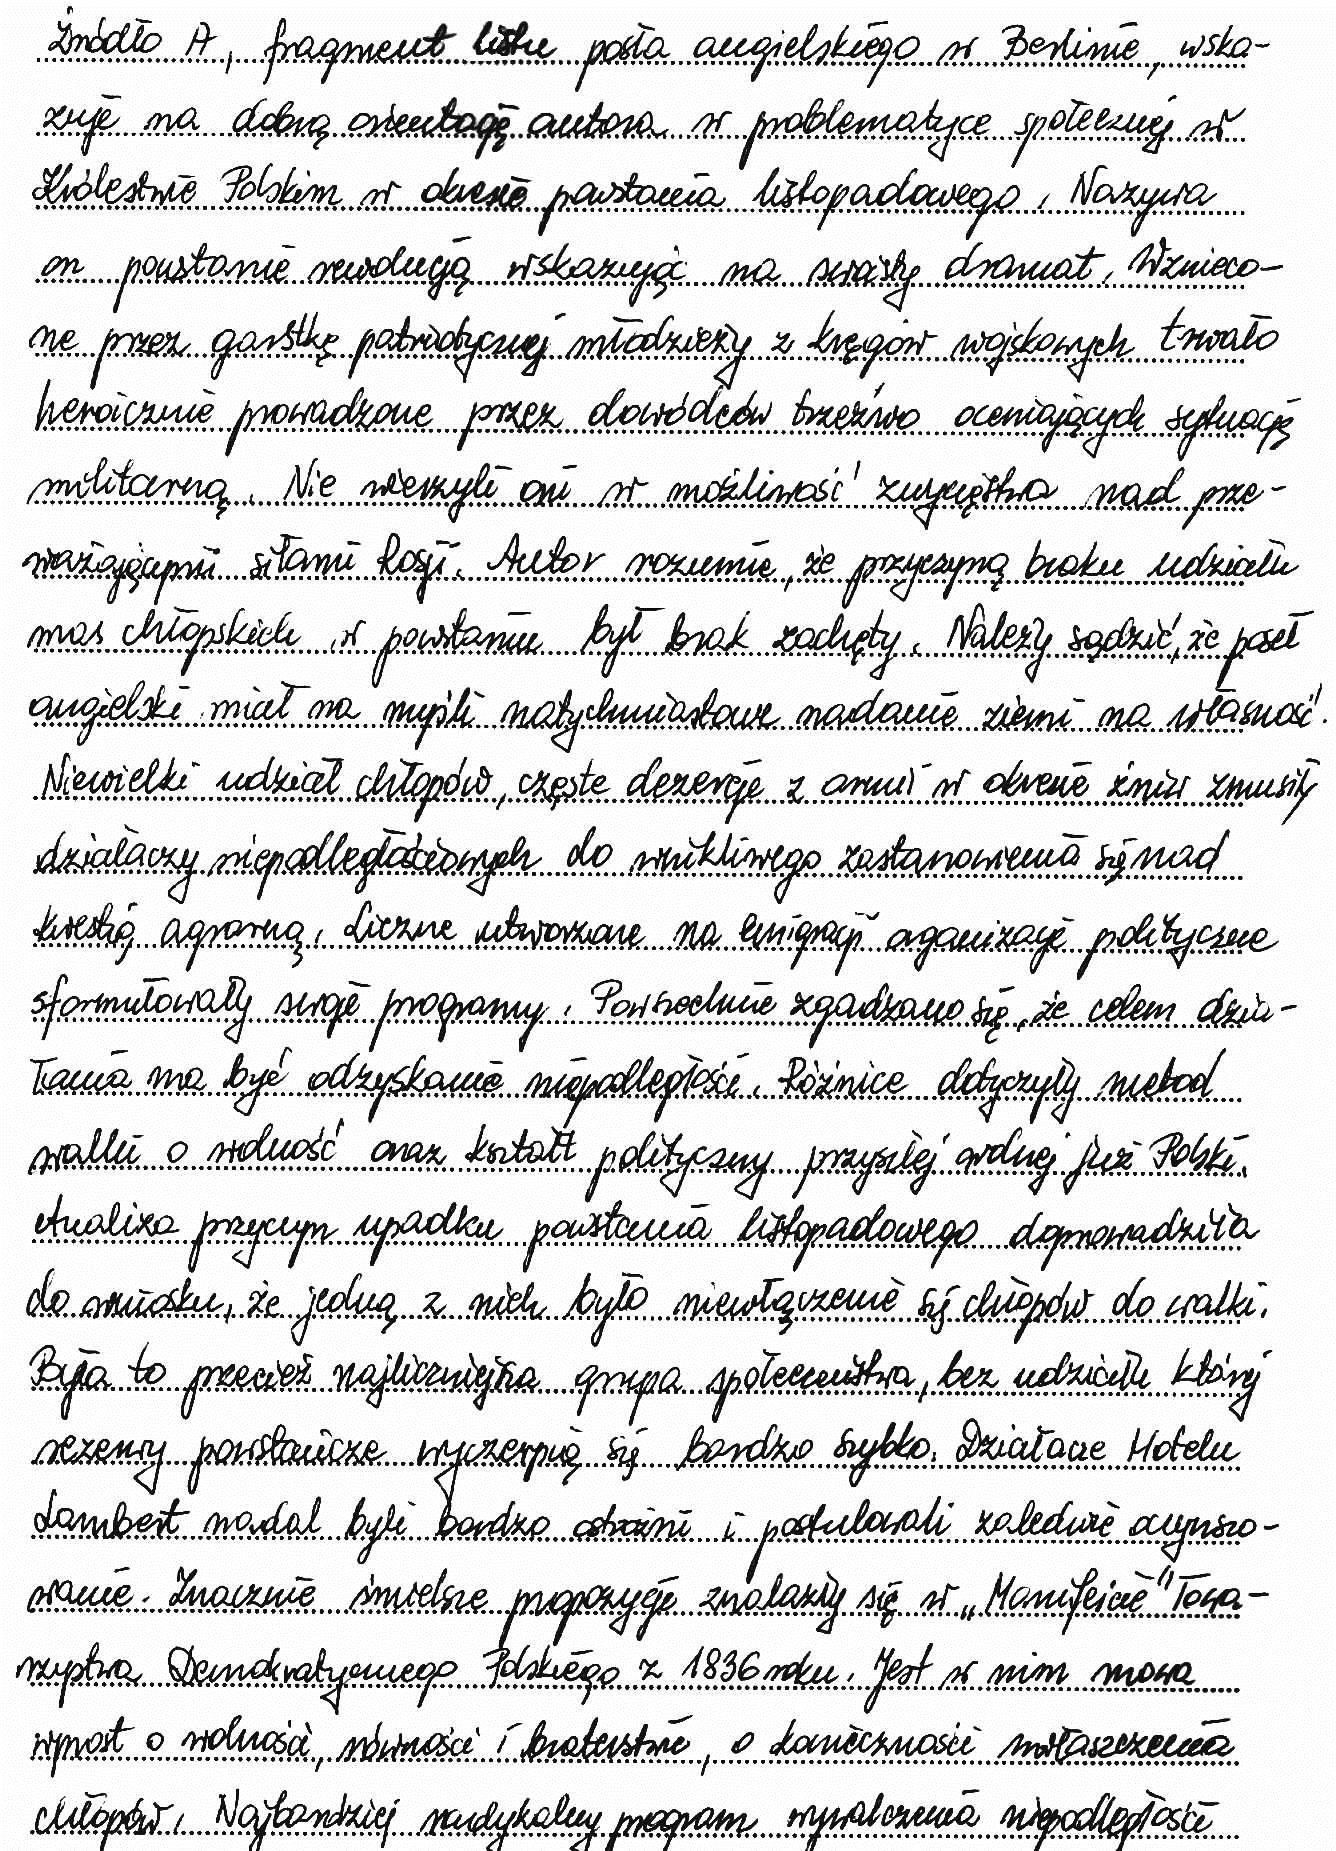 Źródło A, fragment listu posła angielskiego w Berlinie, wska-
zuje na dobrą orientację autora w problematyce społecznej w
Królestwie Polskim w okresie powstania listopadowego. Nazywa
on powstanie rewolucją wskazując na swoisty dramat. Wznieco-
ne przez garstkę patriotycznej młodzieży z kręgów wojskowych trwało
heroicznie prowadzone przez dowódców trzeźwo oceniających sytuację
militarną. Nie wierzyli oni w możliwość zwycięstwa nad prze-
ważającymi siłami Rosji. Autor rozumie, że przyczyną braku udziału
mas chłopskich w powstaniu był brak zachęty. Należy sądzić, że poseł
angielski miał na myśli natychmiastowe nadanie ziemi na własność.
Niewielki udział chłopów, częste dezercje z armii w okresie żniw zmusiły
działaczy niepodległościowych do wnikliwego zastanowienia się nad
kwestią agrarną. Liczne utworzone na emigracji organizacje polityczne
sformułowały swoje programy. Powszechnie zgadzano się, że celem dzia-
łania ma być odzyskanie niepodległości. Różnice dotyczyły metod
walki o wolność oraz kształt polityczny przyszłej wolnej już Polski.
Analiza przyczyn upadku powstania listopadowego doprowadziła
do wniosku, że jedną z nich było niewłączenie się chłopów do walki.
Była to przecież najliczniejsza grupa społeczeństwa, bez udziału której
rezerwy powstańcze wyczerpią się bardzo szybko. Działacze Hotelu
Lambert nadal byli bardzo ostrożni i postulowali zaledwie oczynszo-
wanie. Znacznie śmielsze propozycje znalazły się w „Manifeście" Towa-
rzystwa Demokratycznego Polskiego z 1836 roku. Jest w nim mowa
wprost o wolności, równości i braterstwie, o konieczności uwłaszczenia
chłopów. Najbardziej radykalny program wywalczenia niepodległości